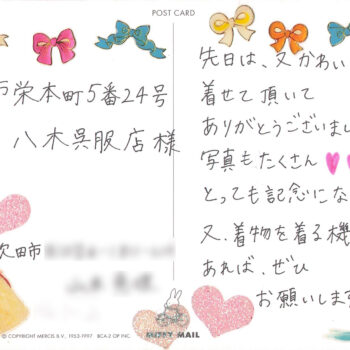 POST CARD
栄本町5番24号
八木呉服店様
吹田市
先日は、又かわい
着せて頂いて
ありがとうございまし
写真もたくさん
とっても記念にな
又、着物を着る機
あれば、ぜひ
お願いします
MIFFY MAIL
© COPYRIGHT MERCIS B.V., 1953-1997 BCA-2 OP INC